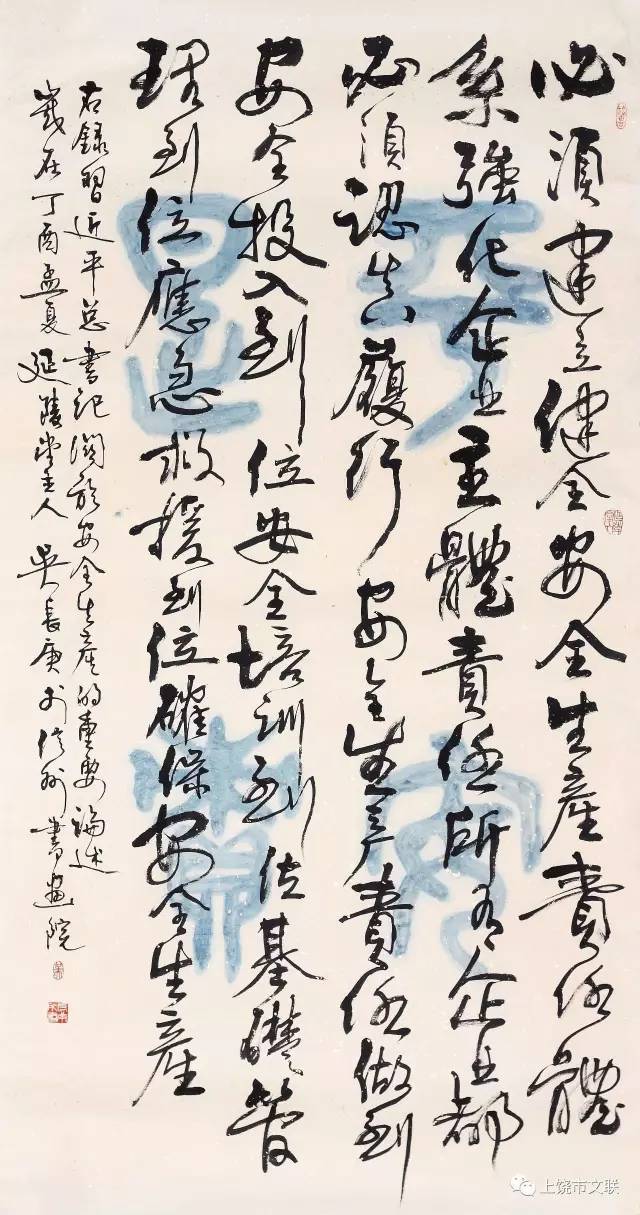 必須建立健全安全生產責任體
系強化企业主體責任所有企业都
必須認真履行安全生产責任做到
安全投入到位安全培訓到位基礎管
理到位應急救援到位確保安全生產
右録習近平总書記関於安全生產的重要論述
歲在丁酉孟夏延陵堂主人吴長庚於信州書画院
上饶市文联